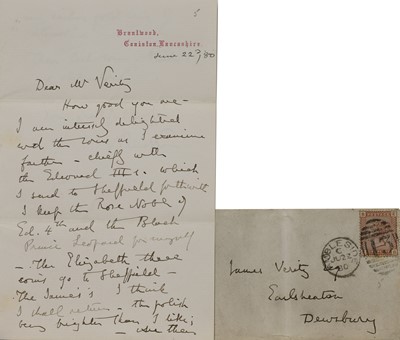 5
Brantwood,
Coniston, Lancashire
June 22nd/80
Dear Mr Verity
How good you are -
I am intensely delighted
with the coins as I examine
farther - chiefly with
the Edward IIIs. which
I send to Sheffield forthwith
I keep the Rose Noble of
Ed. 4th and the Black
Prince Leopard for myself
- The Elizabeth these
coins go to Sheffield -
The James's I think
I shall return - the polish
being brighter than I like;
- were they
AMBLESIDE
C
JU 22
80
James Verity
Earlsheaton
Dewsbury